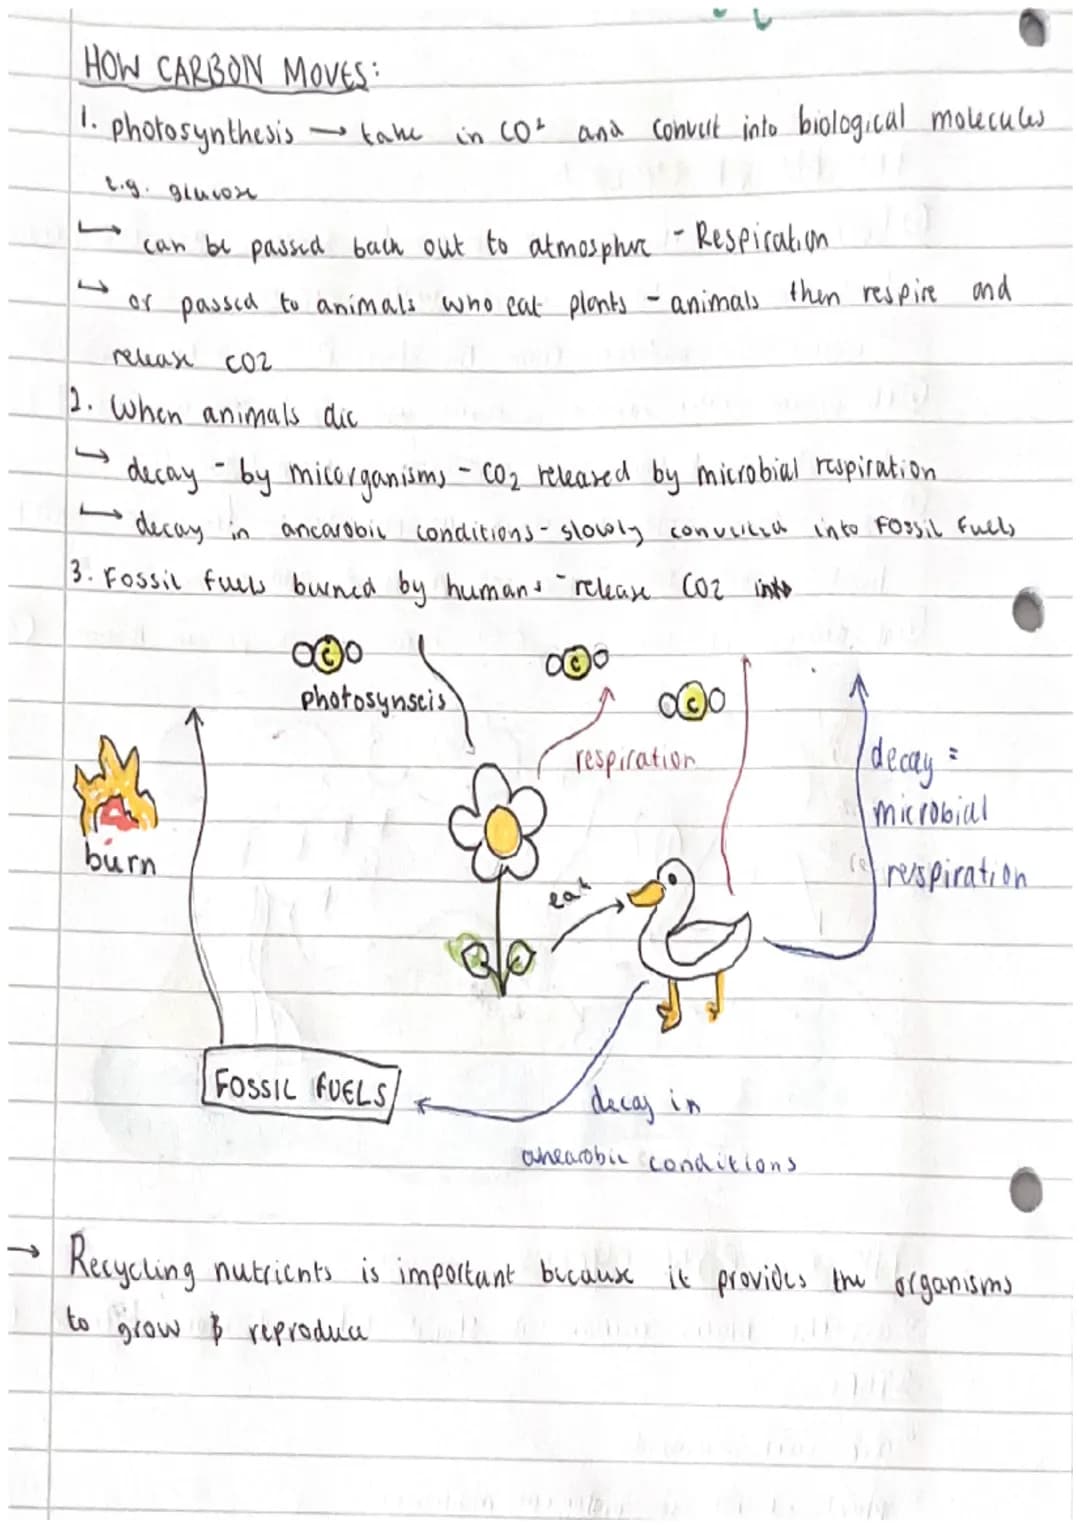 HOW CARBON MOVES:
1. photosynthesis → take in CO² and convert into biological molecules
e.g. glucose
↳ can be passed back out to atmosphre - Respiration
↳ or passed to animals who eat plants - animals then respire and
release CO2
2. When animals die
↳ decay - by micorganisms - CO₂ released by microbial respiration
↳ decay in anearobic conditions - slowly converted into Fossil Fuels
3. Fossil fuels burned by humans - release CO2 into
O C O
O C O
photosynseis
O C O
respiration
decay =
microbial
respiration
burn
eat
FOSSIL FUELS
decay in
anearobic conditions
→ Recycling nutrients is important because it provides the organisms
to grow & reproduce